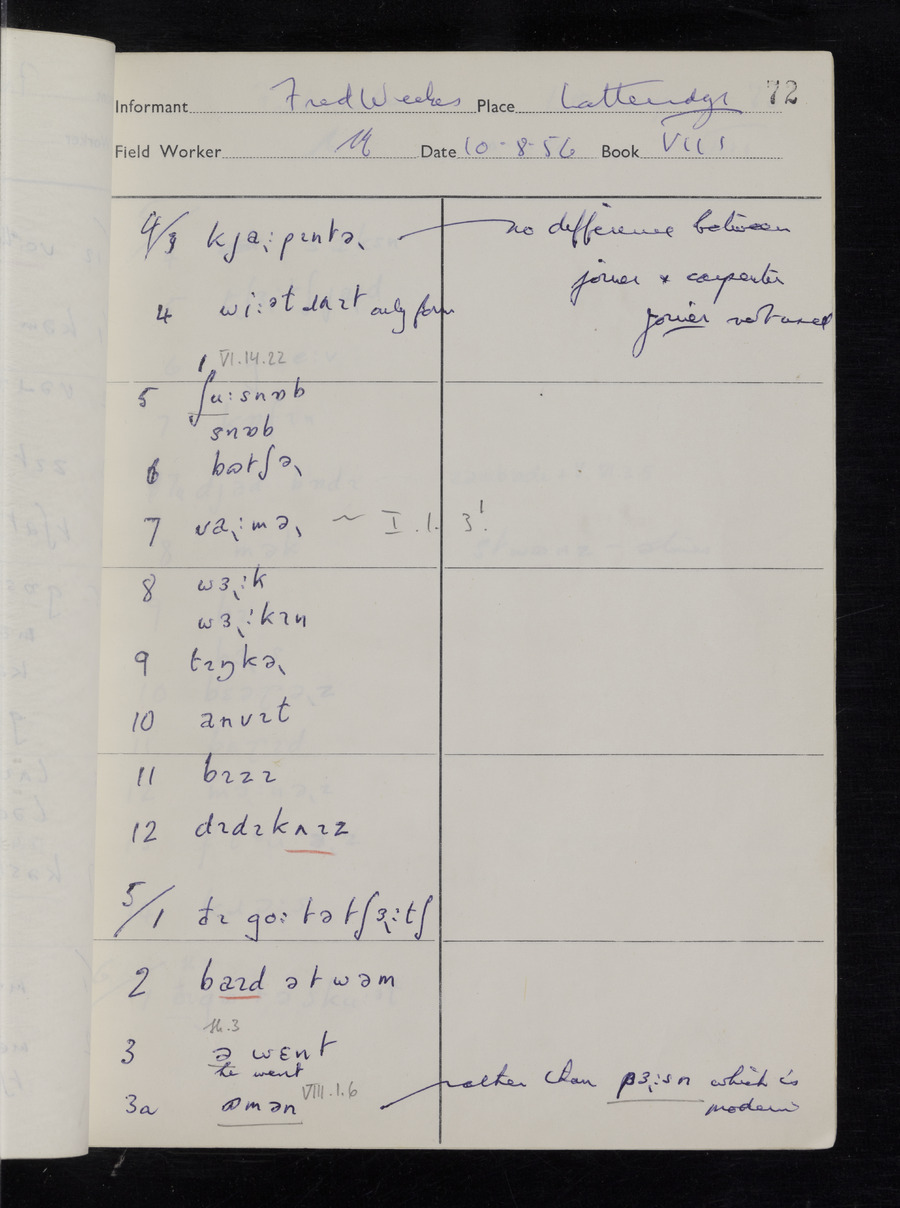 Informant Fred Weekes Place Latteridge 72
Field Worker Date 10-8-56 Book VIII
4/3 kɹ̣aː˞pɪntə˞ no difference between
joiner & carpenter
4 only form joiner not used
VI.14.22
5 ʃuːsnɒb
snɒb
6 bətʃə˞
7 vaː˞mə˞ ~ I.1.3!
8 wɜː˞k
wɜː˞kɪn
9 tɪŋkə˞
10 anvɪt
11 bɪzɪ
12 dɪdɪkʌɪz
5/1 ðɪ goː tə tʃɜː˞tʃ
2 baɪd ət wəm
3 ə wɛnt
he went
3a ɒmən VIII.1.6 rather than pɜː˞sn which is
modern